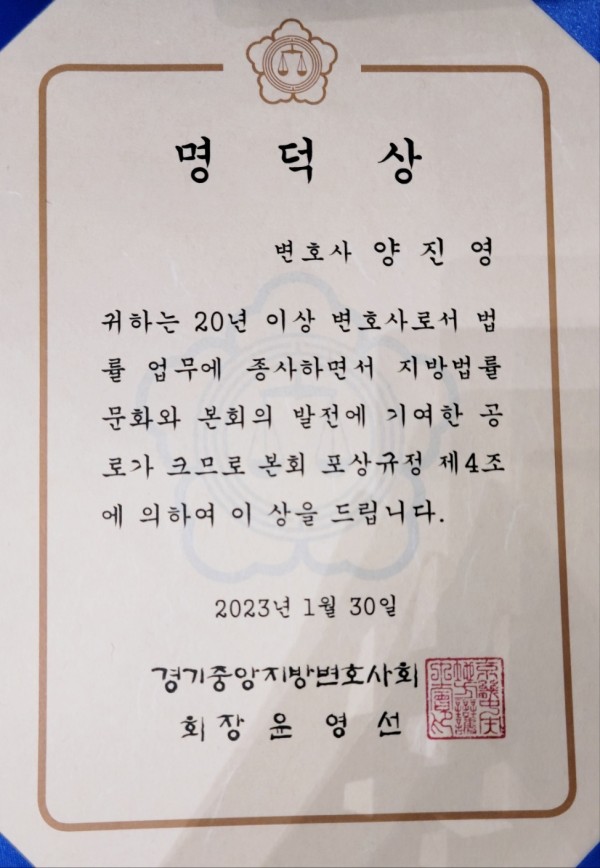 명 덕 상
변호사 양 진 영
귀하는 20년 이상 변호사로서 법
률 업무에 종사하면서 지방법률
문화와 본회의 발전에 기여한 공
로가 크므로 본회 포상규정 제4조
에 의하여 이 상을 드립니다.
2023년 1월 30일
경기중앙지방변호사회
회 장 윤 영 선